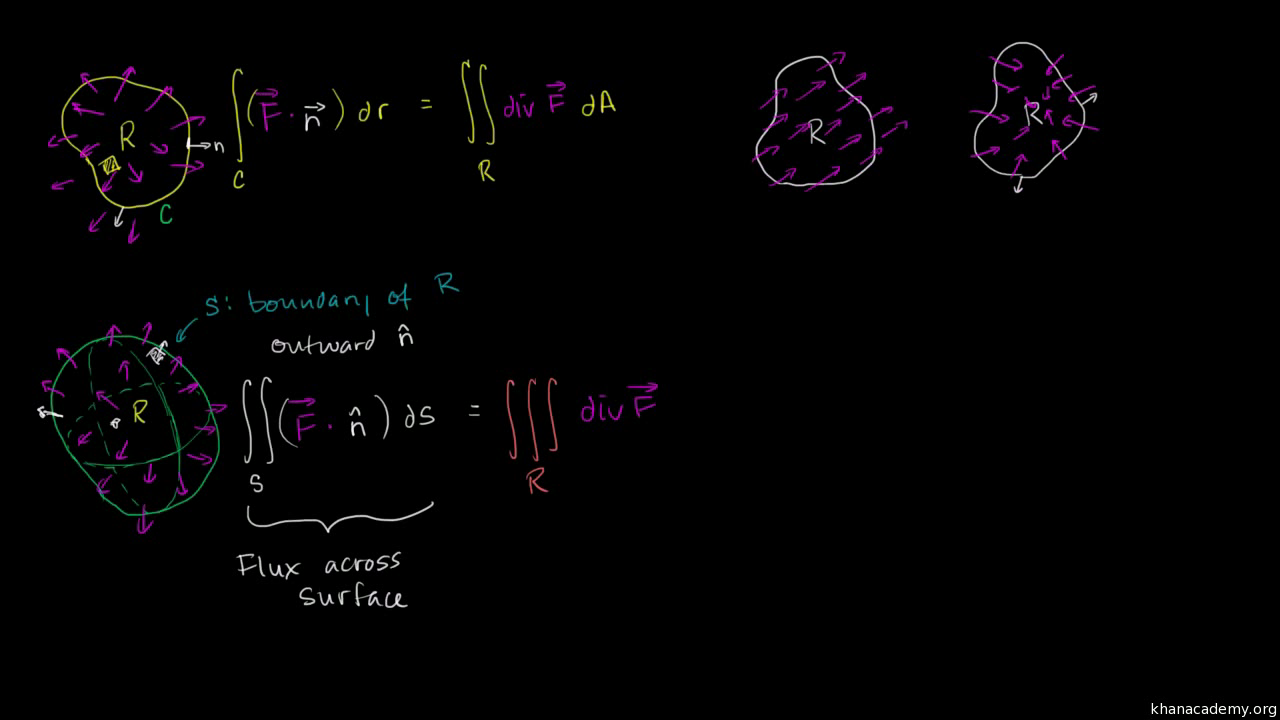 R
n
C
∫ (F⃗ · n⃗) dr = ∬ div F⃗ dA
C
R
R
R
S: boundary of R
outward n̂
R
∬ (F⃗ · n̂) dS = ∭ div F⃗
S
R
Flux across
surface
khanacademy.org